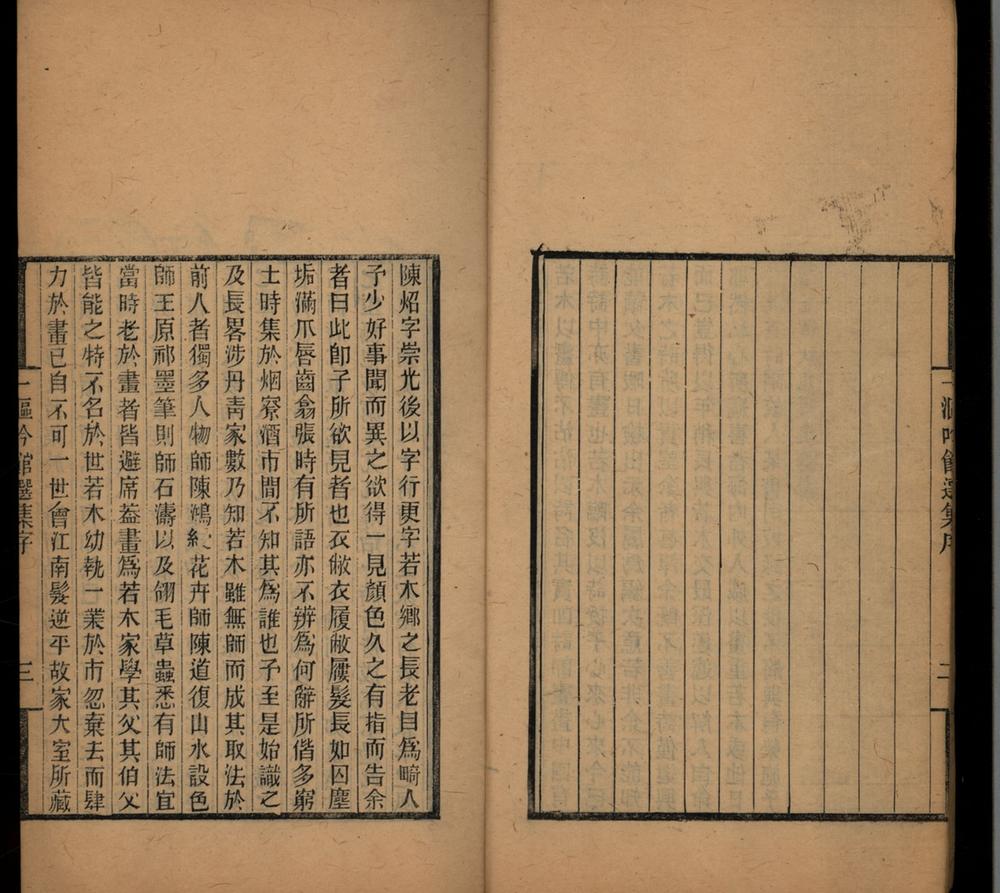 陳炤字崇光後以字行更字若木鄉之長老目爲畸人
予少好事聞而異之欲得一見顏色久之有指而告余
者曰此卽子所欲見者也衣敝衣履敝屨髮長如囚塵
垢滿爪唇齒翕張時有所語亦不辨爲何辭所偕多窮
士時集於烟寮酒市間不知其爲誰也予至是始識之
及長畧涉丹靑家數乃知若木雖無師而成其取法於
前人者獨多人物師陳鴻綬花卉師陳道復山水設色
師王原祁墨筆則師石濤以及翎毛草蟲悉有師法宜
當時老於畫者皆避席葢畫爲若木家學其父其伯父
皆能之特不名於世若木幼執一業於市忽棄去而肆
力於畫已自不可一世會江南髮逆平故家大室所藏
選集序
三
選集序
二